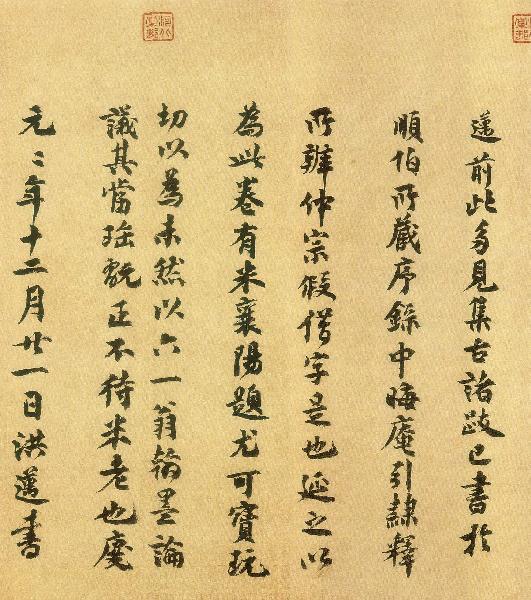 邁前此多見集古諸跋已書於
順伯所藏序錄中晦庵引隸釋
所辨仲宗假借字是也延之以
為此卷有米襄陽題尤可寶玩
切以為未然以六一翁翰墨論
議其當正不待米老也慶
元〻年十二月廿一日洪邁書